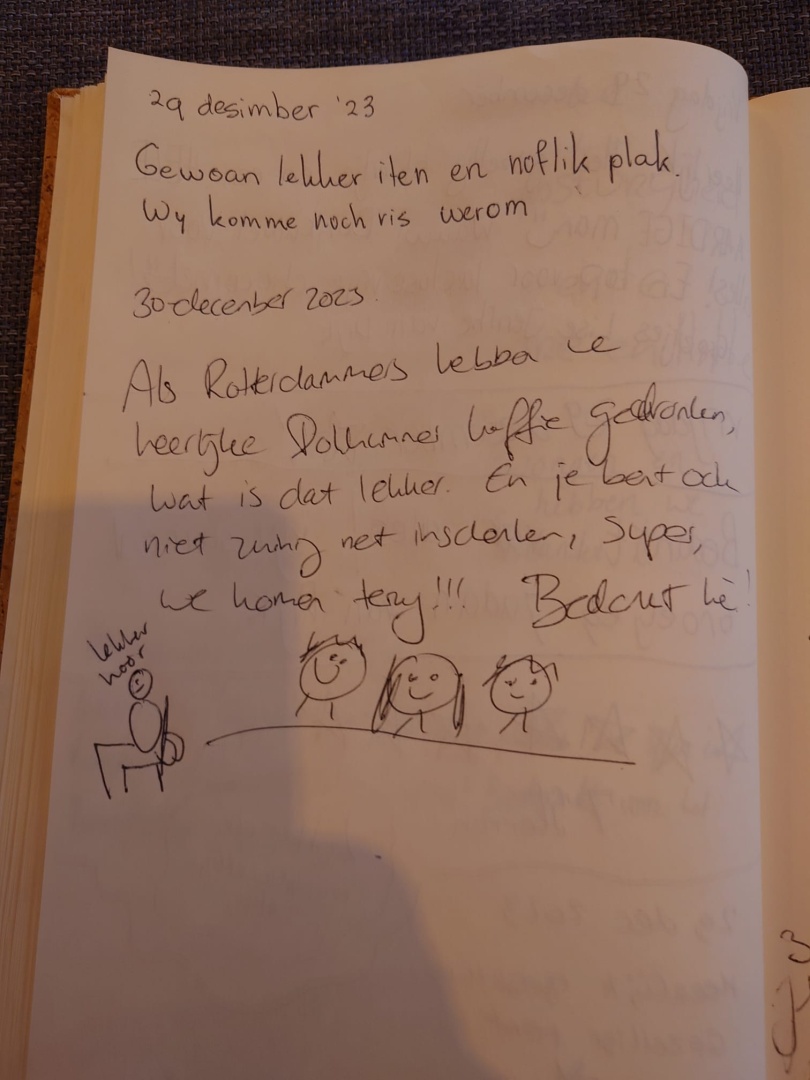 29 desimber '23
Gewoan lekker iten en noflik plak.
Wy komme noch ris werom
30 december 2023
Als Rotterdammers hebben we
heerlijke Dokkumer koffie gedronken,
wat is dat lekker. En je bent ook
niet zuinig met inschenken, super,
we komen terug!!! Bedankt hè!
lekker
hoor